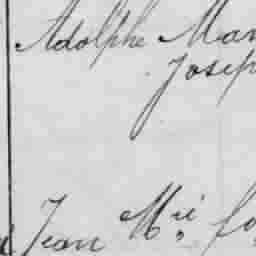 Adolphe Mar
Josep
Jean M.rie fo